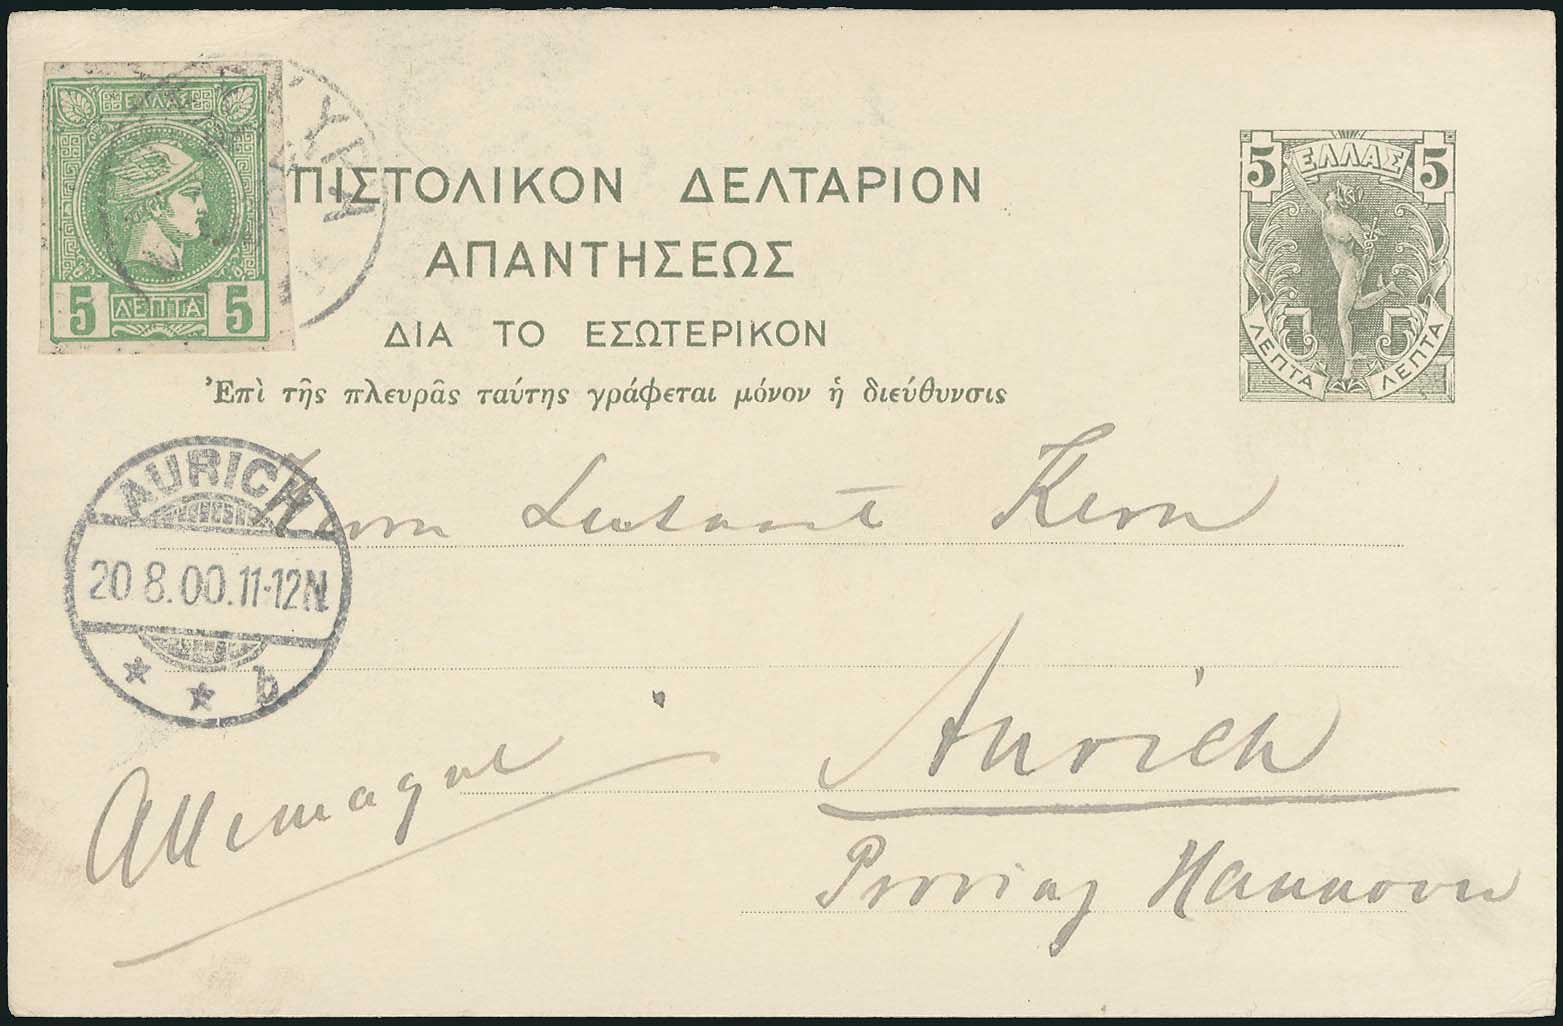 ΕΛΛΑΣ
5 ΛΕΠΤΑ 5
ΠΙΣΤΟΛΙΚΟΝ ΔΕΛΤΑΡΙΟΝ
ΑΠΑΝΤΗΣΕΩΣ
ΔΙΑ ΤΟ ΕΣΩΤΕΡΙΚΟΝ
Ἐπὶ τῆς πλευρᾶς ταύτης γράφεται μόνον ἡ διεύθυνσις
5 ΕΛΛΑΣ 5
ΛΕΠΤΑ ΛΕΠΤΑ
AURICH
20 8.00.11-12N
* * b
Herrn Leutnant Kern
Aurich
Allemagne
Provinz Hannover